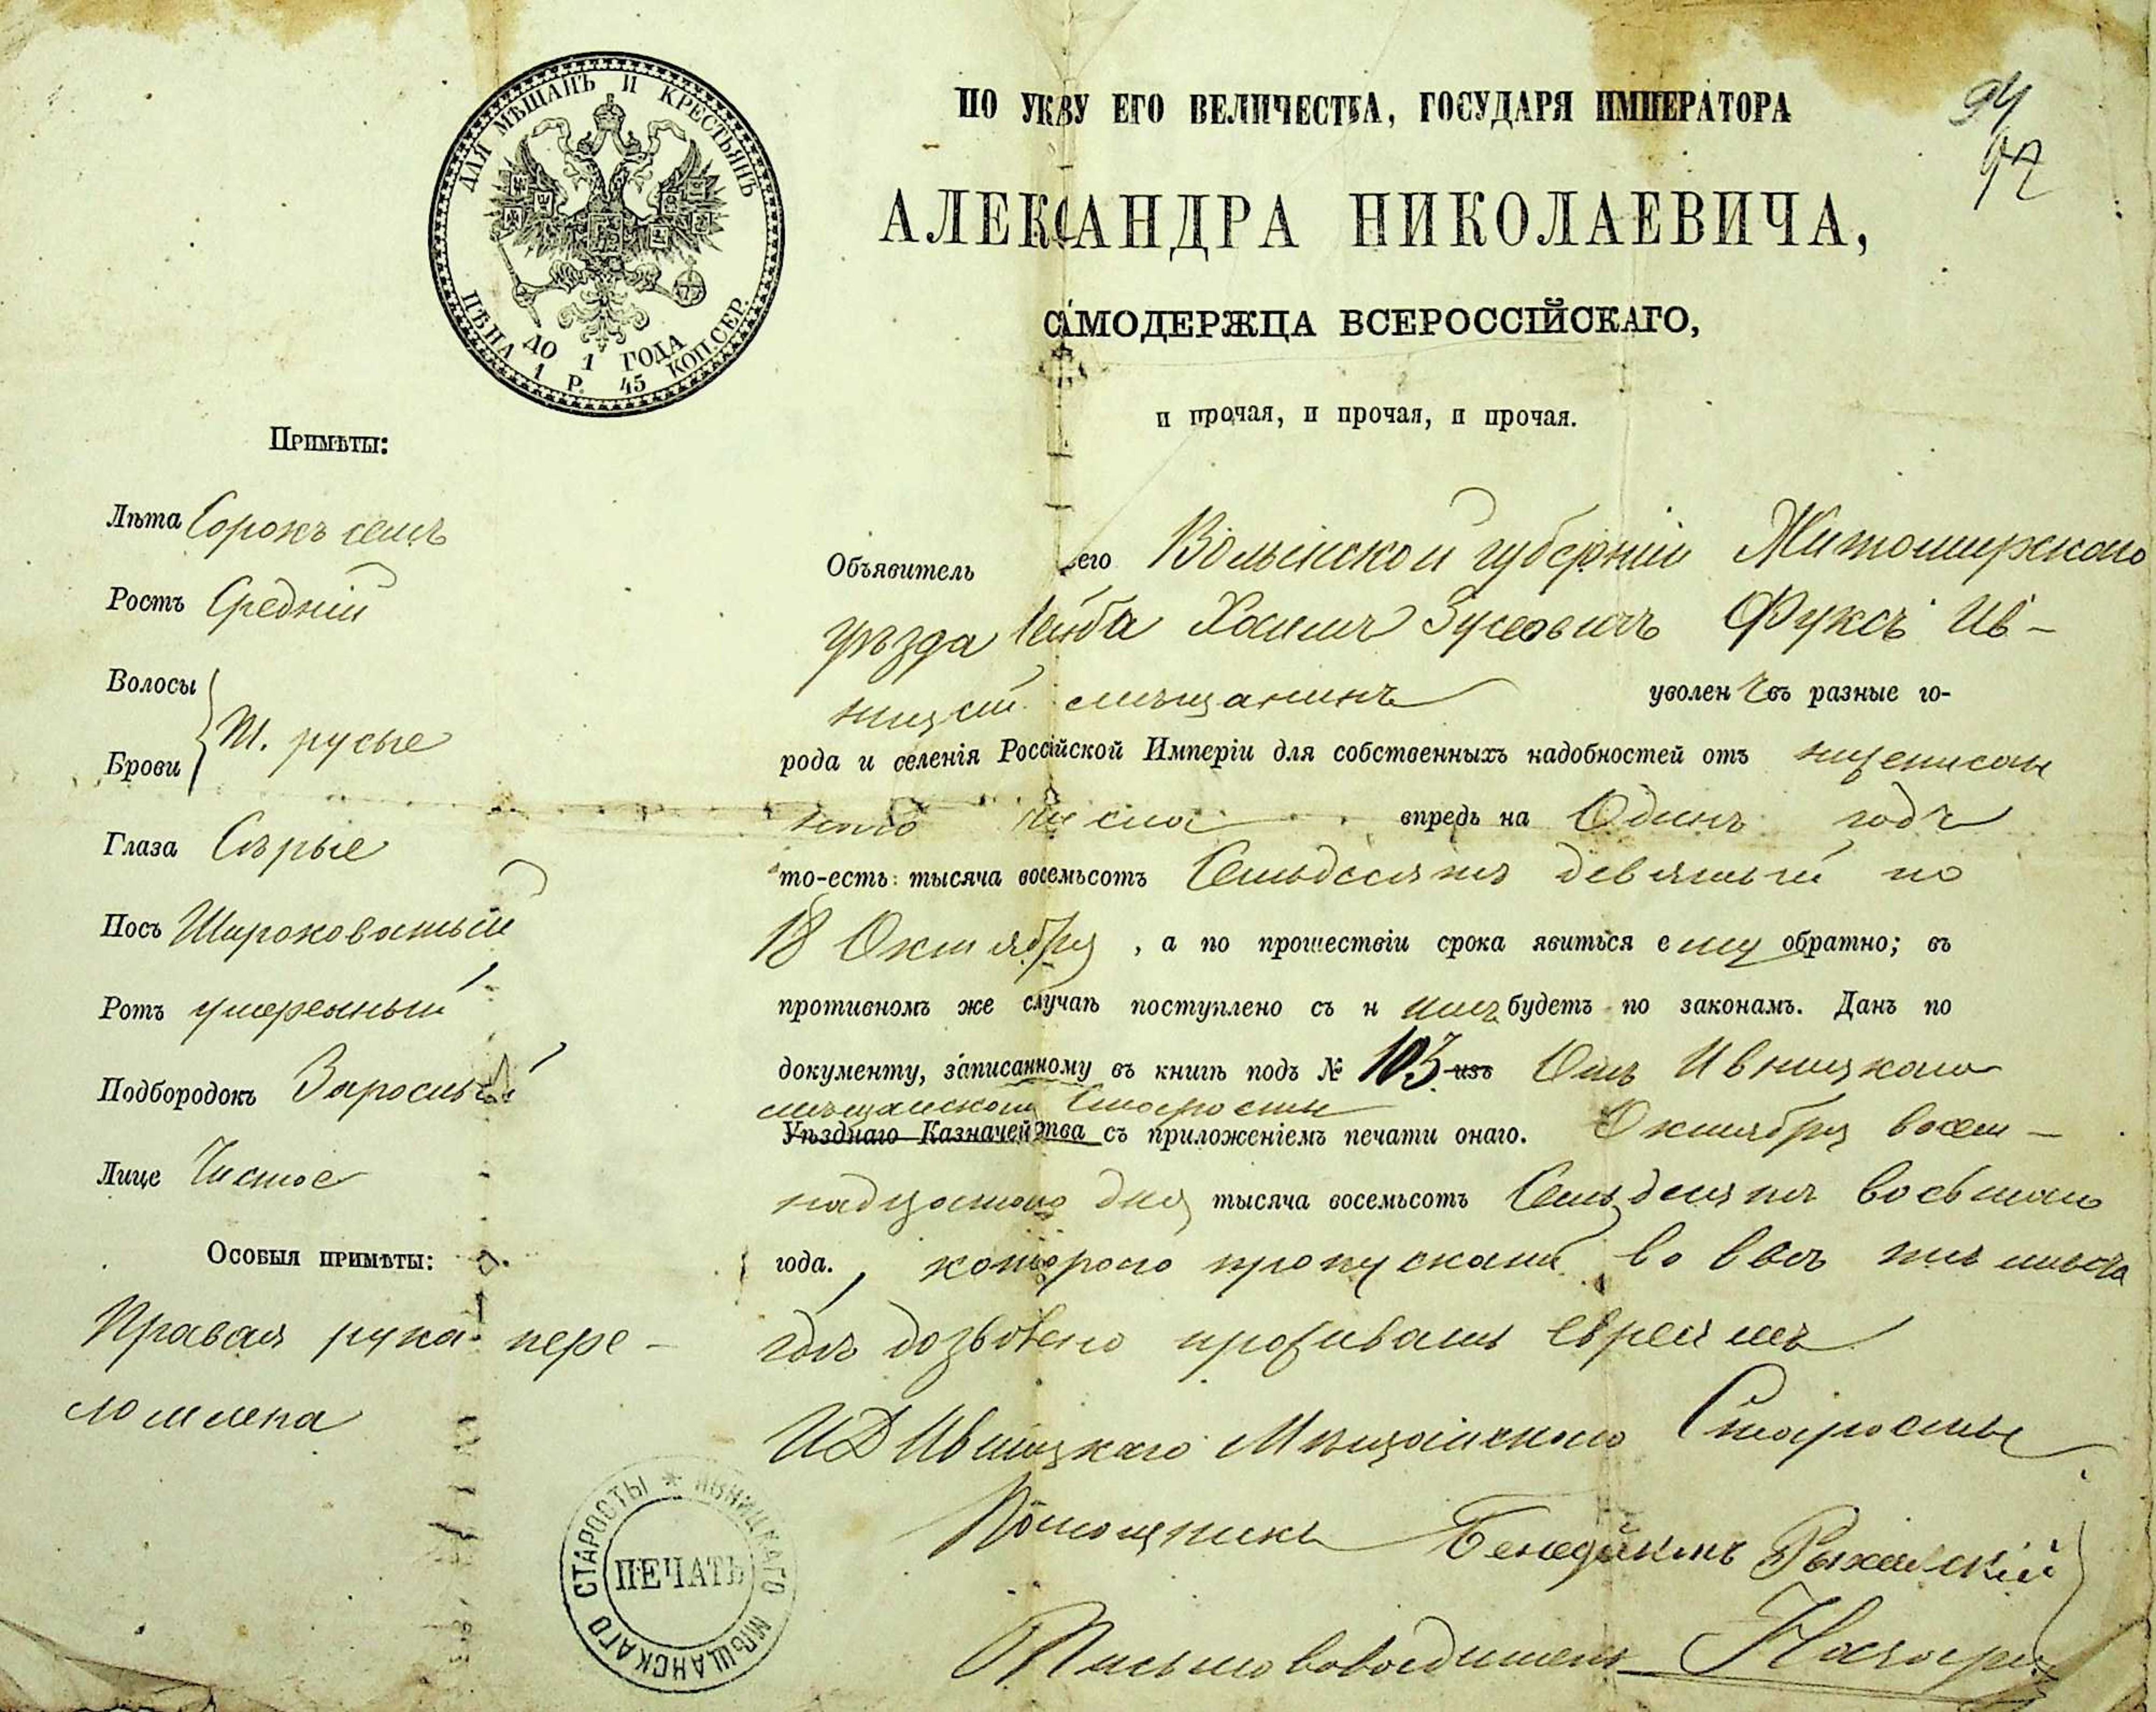 ДЛЯ МѢЩАНЪ И КРЕСТЬЯНЪ
ДО 1 ГОДА
ЦѢНА 1 Р. 45 КОП. СЕР.
ПО УКАЗУ ЕГО ВЕЛИЧЕСТВА, ГОСУДАРЯ ИМПЕРАТОРА
94
97
АЛЕКСАНДРА НИКОЛАЕВИЧА,
САМОДЕРЖЦА ВСЕРОССІЙСКАГО,
и прочая, и прочая, и прочая.
Примѣты:
Лѣта Сорокъ семь
Ростъ Средній
Волосы
Т. русые
Брови
Глаза Сѣрые
Носъ Широковатый
Ротъ умеренный
Подбородокъ Заросшій
Лице Чистое
Особыя примѣты:
Правая рука пере-
ломлена
Объявитель сего Волынской губерніи Житомирскаго
уѣзда Лейба Хаимъ Зусевичъ Фуксъ Ив-
ницкій мѣщанинъ уволенъ въ разные го-
рода и селенія Россійской Имперіи для собственныхъ надобностей отъ нижеписан
наго числа впредь на Одинъ годъ
то-есть: тысяча восемьсотъ Семьдесятъ девятый по
18 Октября, а по прошествіи срока явиться ему обратно; въ
противномъ же случаѣ поступлено съ нимъ будетъ по законамъ. Данъ по
документу, записанному въ книгѣ подъ № 103 изъ Отъ Ивницкаго
мѣщанскаго Старосты
Уѣзднаго Казначейства съ приложеніемъ печати онаго. Октября восем-
надцатого дня тысяча восемьсотъ Семьдесятъ восьмаго
года., котораго пропускать во всѣ тѣ мѣста
гдѣ дозволено проживать евреямъ
ИД Ивницкаго Мѣщанскаго Старосты
Помощникъ Бенедиктъ
Письмоводитель
ИВНИЦКАГО МѢЩАНСКАГО СТАРОСТЫ
ПЕЧАТЬ